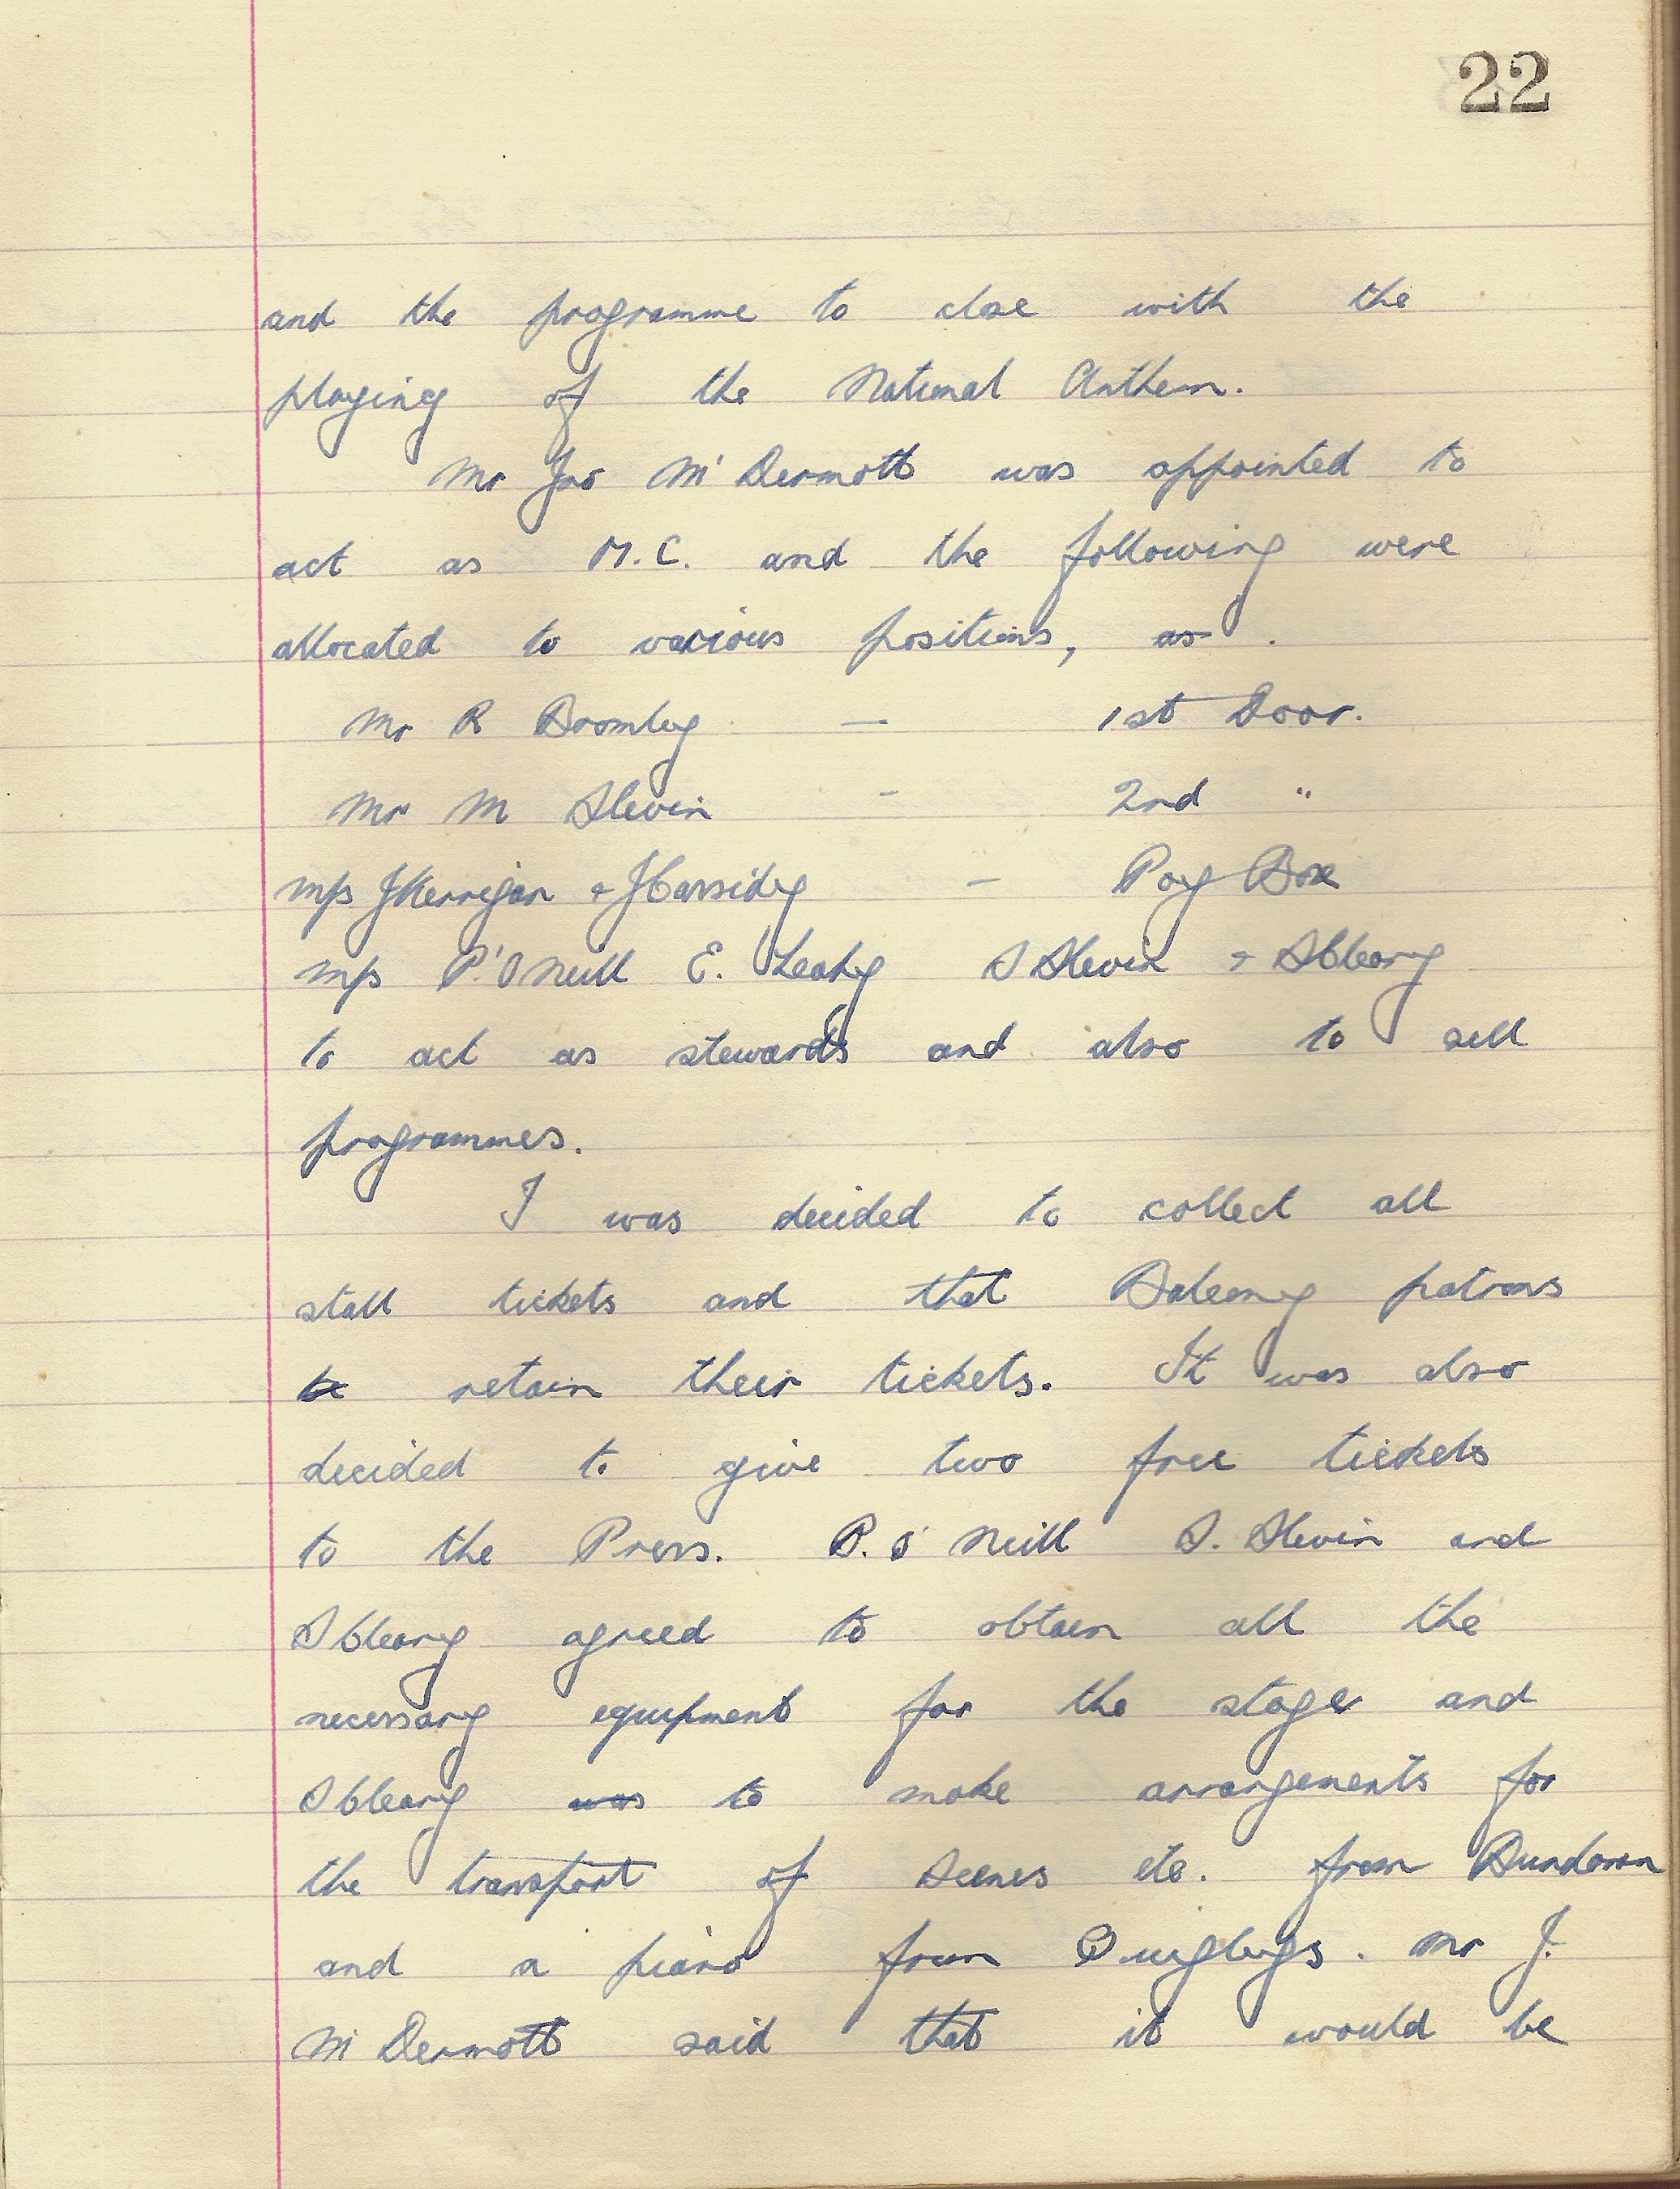 22
and the programme to close with the
playing of the National Anthem.
Mr Jno McDermott was appointed to
act as M.C. and the following were
allocated to various positions, as .
Mr R Bromley — 1st Door.
Mr M Slevin - 2nd "
Mrs J Kerrigan & J Cassidy — Pay Box
Mrs P. O'Neill E. Leahy S Slevin & S Cleary
to act as stewards and also to sell
programmes.
I was decided to collect all
stall tickets and that Balcony patrons
to retain their tickets. It was also
decided to give two free tickets
to the Press. P. O'Neill S. Slevin and
S Cleary agreed to obtain all the
necessary equipment for the stage and
S Cleary was to make arrangements for
the transport of Scenes etc. from Bundoran
and a piano from Quigleys. Mr J.
McDermott said that it would be